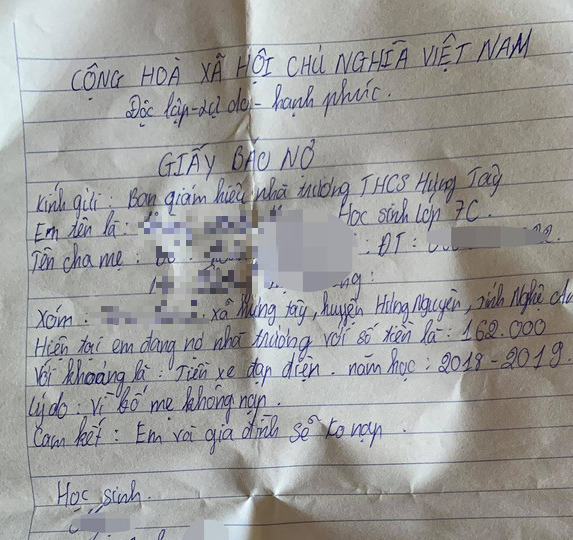 CỘNG HOÀ XÃ HỘI CHỦ NGHĨA VIỆT NAM
Độc lập - tự do - hạnh phúc.
GIẤY BÁO NỞ
Kính gửi: Ban giám hiệu nhà trường THCS Hưng Tây
Em tên là: Học sinh lớp 7C.
Tên cha mẹ: : ĐT:
ng:
Xóm: xã Hưng tây, huyện Hưng Nguyên, tỉnh Nghệ An
Hiện tại em đang nợ nhà trường với số tiền là: 162.000
Với khoảng là: Tiền xe đạp điện. năm học: 2018-2019.
Lý do: vì bố mẹ không nạp.
Cam kết: Em với gia đình sẽ ko nạp.
Học sinh.